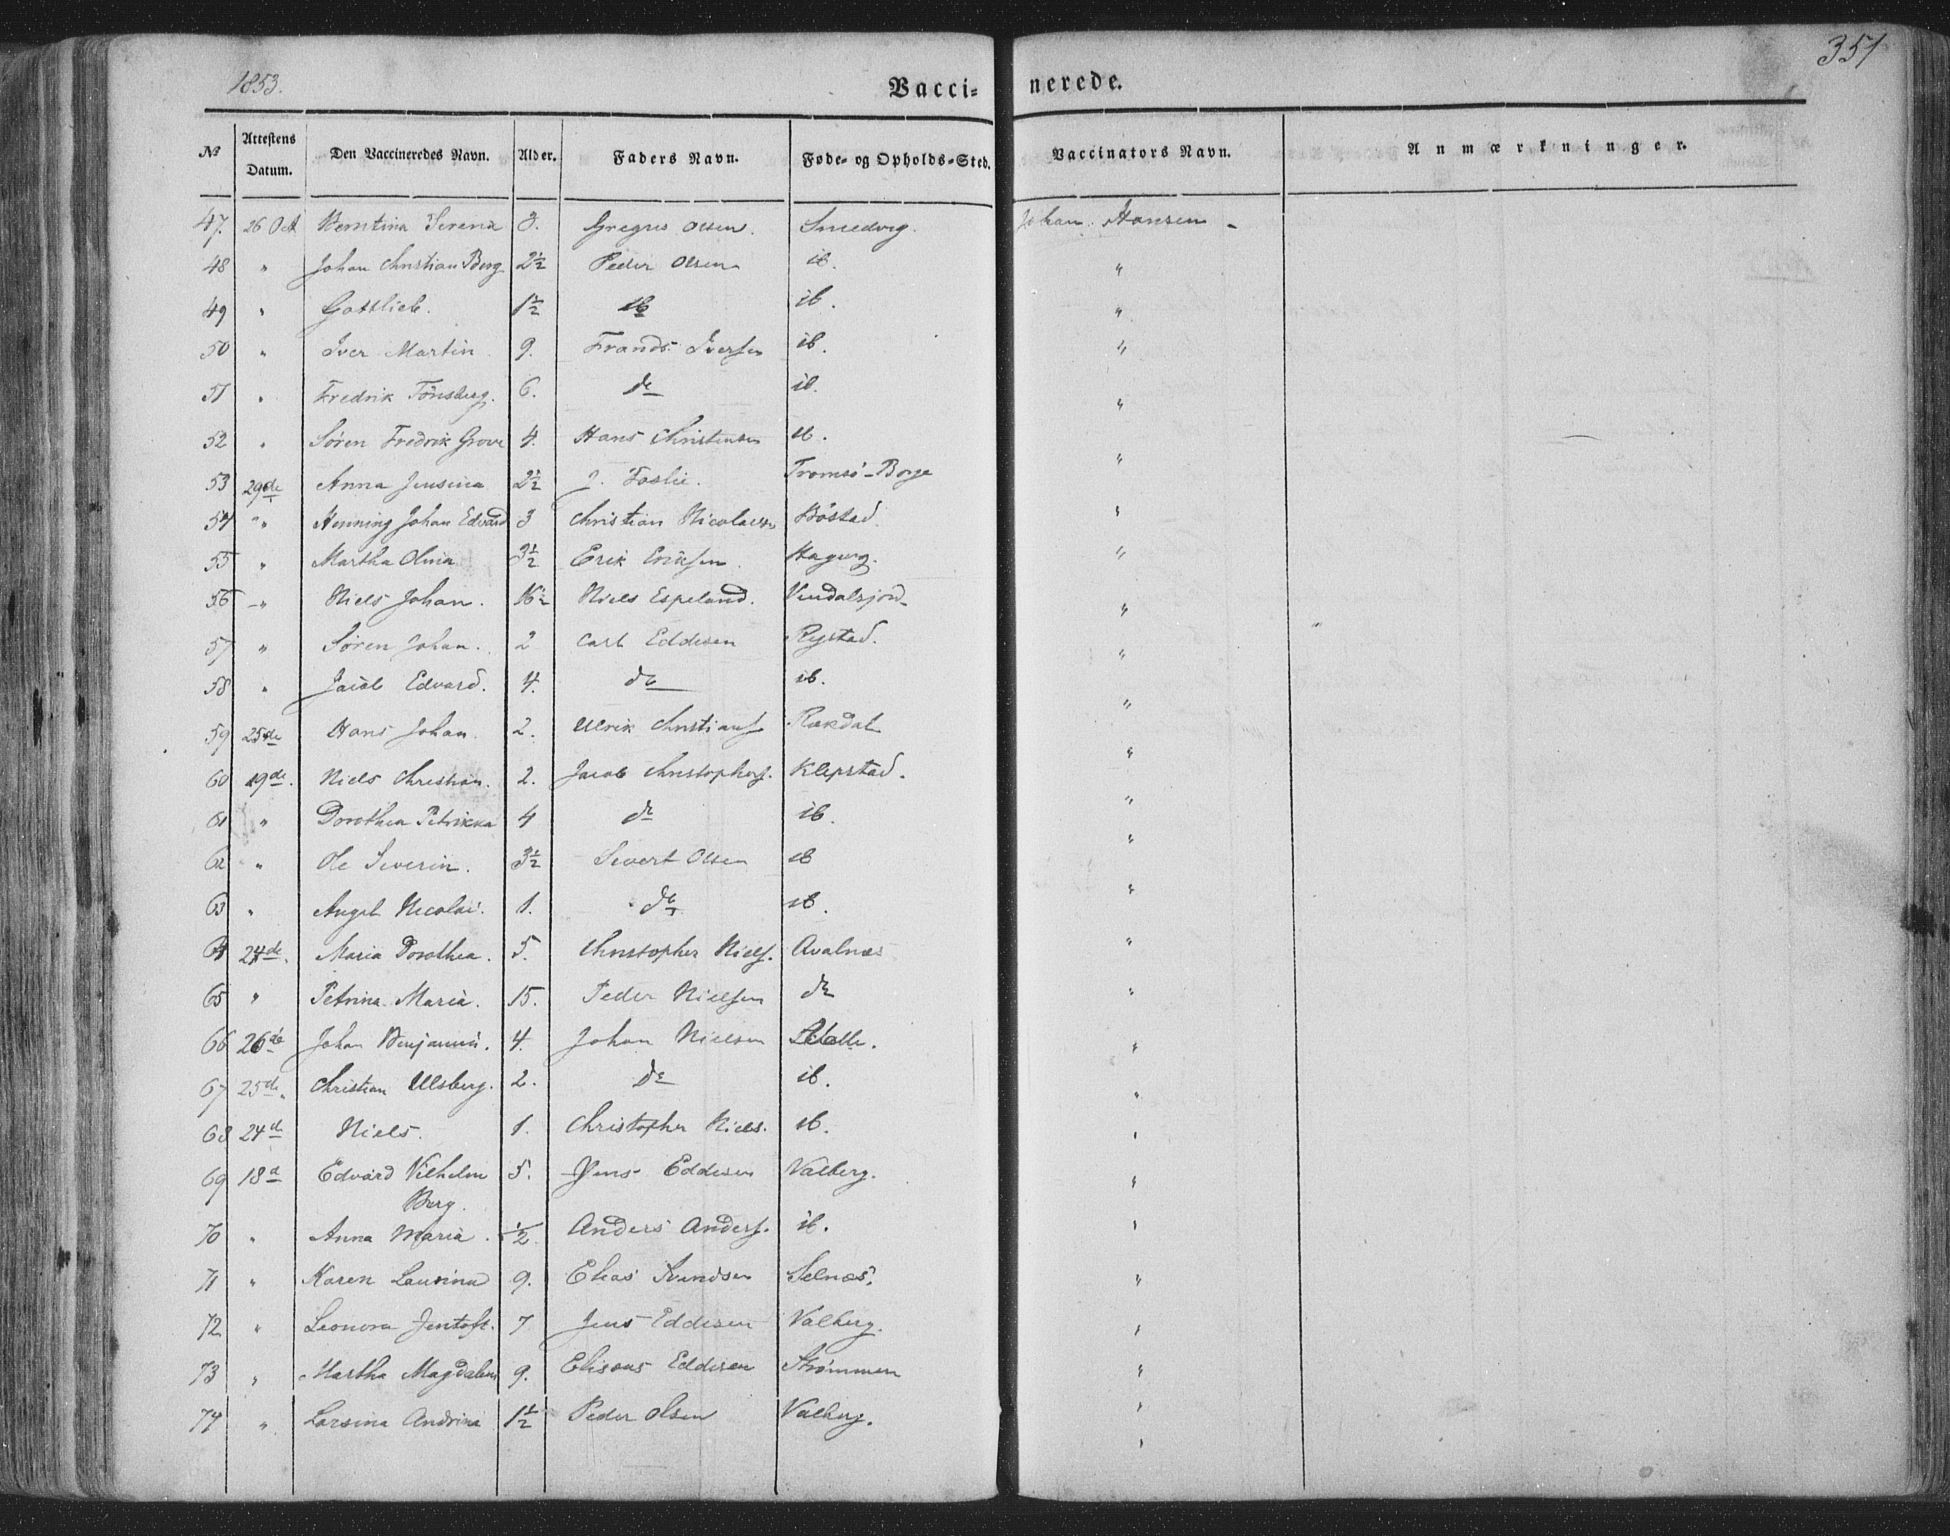 1853.
Vacci- nerede.
351
No Attestens Datum. Den Vaccineredes Navn. Alder. Faders Navn. Føde- og Opholds-Sted. Vaccinators Navn. Anmærkninger.
47. 26 Oct Berntina Serena 3. Gregus Olsen. Smedvig. Johan Hansen -
48 " Johan Christian Berg 2½ Peder Olsen ib. "
49 " Gottlieb. 1½ do ib. "
50 " Iver Martin 9. Frands Iversen ib. "
51 " Fredrik Tønsberg. 6. do ib. "
52 " Søren Fredrik Grove 4. Hans Christensen ib. "
53 29de Anna Jensina 2½ J. Foslie. Tromsö-Borge "
54 " Henning Johan Edvard 3 Christian Nicolaisen Böstad. "
55 " Martha Olina 3½ Erik Eriksen. Hagvig. "
56 " Niels Johan. 16½ Niels Espeland. "
57 " Søren Johan. 2 Carl Eddisen Rystad. "
58 " Jacob Edvard. 4. do ib. "
59 25de Hans Johan. 2. Ulrik Christians. Rakdal "
60 19de. Niels Christian. 2. Jacob Christophers. Klepstad. "
61 " Dorothea Petrikka 4 do ib. "
62 " Ole Severin. 3½ Sivert Olsen ib "
63 " Angel Nicolai. 1. do ib. "
64 24de. Maria Dorothea. 5. Christopher Niels. Avalnes "
65 " Petrina Maria. 15. Peder Nielsen do "
66 26de Johan Benjamin. 4. Johan Nielsen "
67 25de. Christian Ulsberg. 2. do ib. "
68 24d Niels. 1. Christopher Niels. ib. "
69 18d Edvard Vilhelm 5. Jens Eddisen Valberg. "
Berg.
70 " Anna Maria. ½. Anders Anders. ib. "
71 " Karen Laurina 9. Elias Svendsen Selnæs. "
72 " Leonora Jentoft. 7 Jens Eddisen Valberg. "
73 " Martha Magdalena 9. Elisæus Eddisen Strømmen "
74 " Larsina Andrina 1½ Peder Olsen Valberg. "